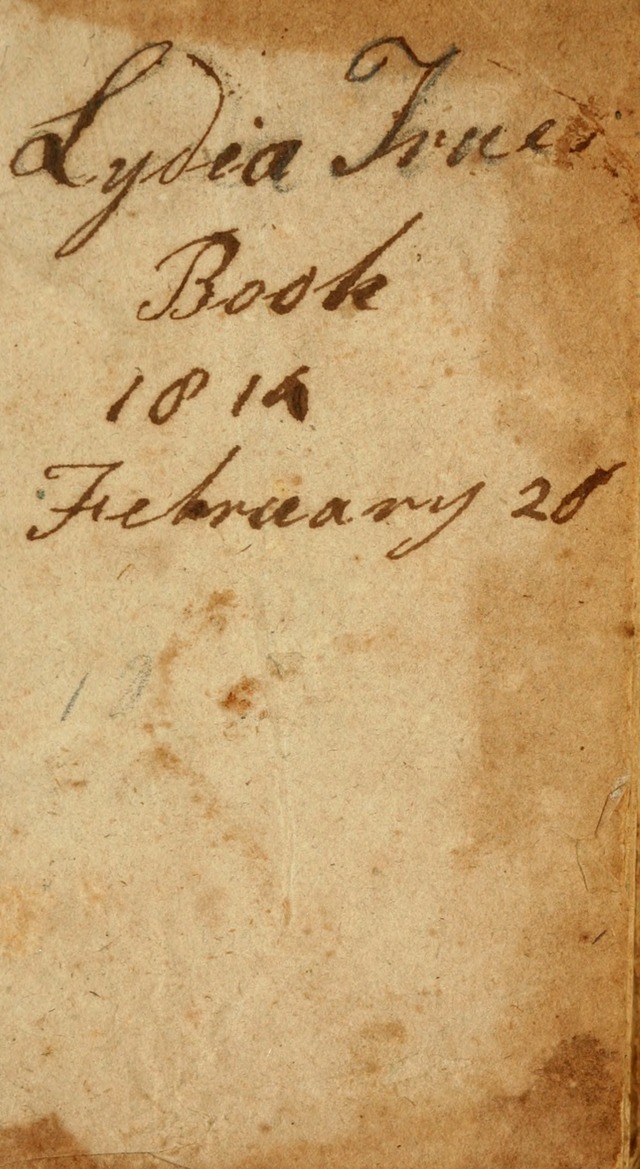 Lydia Trues
Book
1814
February 28
18